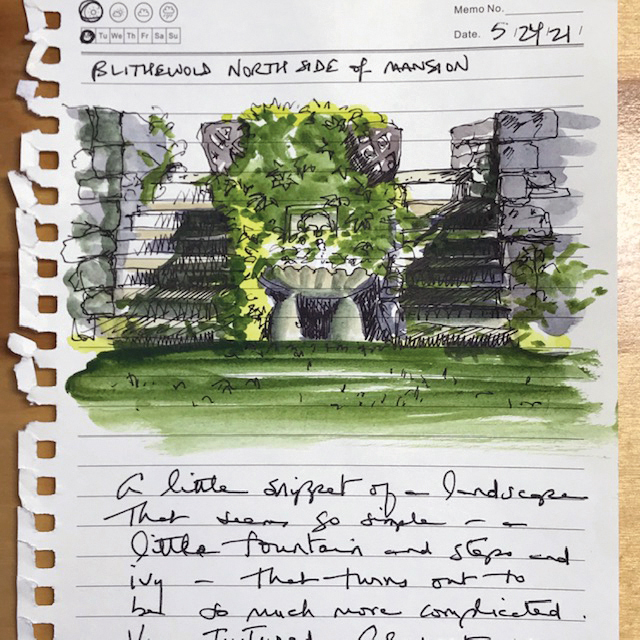 Memo No.
Tu We Th Fr Sa Su
Date. 5/24/21
BLITHEWOLD NORTH SIDE of MANSION
A little snippet of a landscape
That seems so simple - a
little fountain and steps and
ivy - that turns out to
be so much more complicated.
Textured.